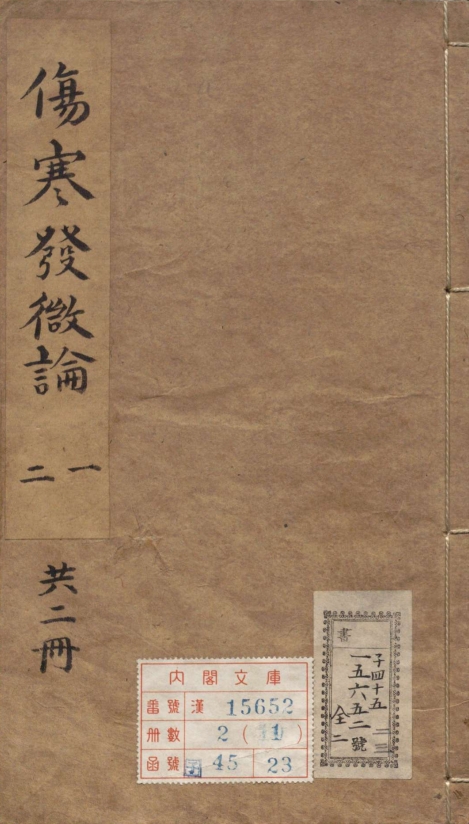 傷寒發微論
一
二
共二冊
書
子四十五
一五六五二號
全二
二三
內閣文庫
番號 漢 15652
册數 2 ( 1 )
函號 子 45 23